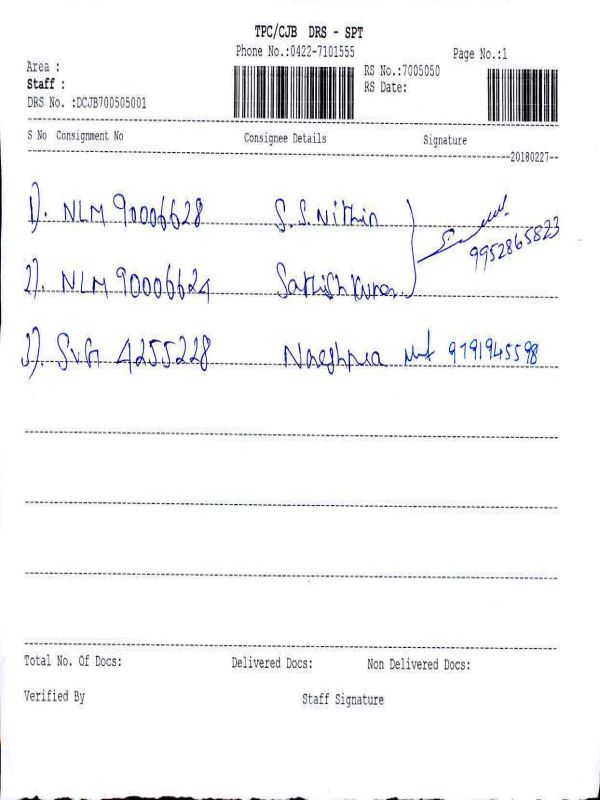 TPC/CJB DRS - SPT
Phone No.:0422-7101555
Page No.:1
Area :
RS No.:7005050
Staff :
RS Date:
DRS No. :DCJB700505001
S No Consignment No Consignee Details Signature
20180227
1). NLM 90006628 S.S.Nithin
9952865823
2). NLM 90006624 Sathish Kumar
3). SVG 4255228 9791945598
Total No. Of Docs: Delivered Docs: Non Delivered Docs:
Verified By Staff Signature